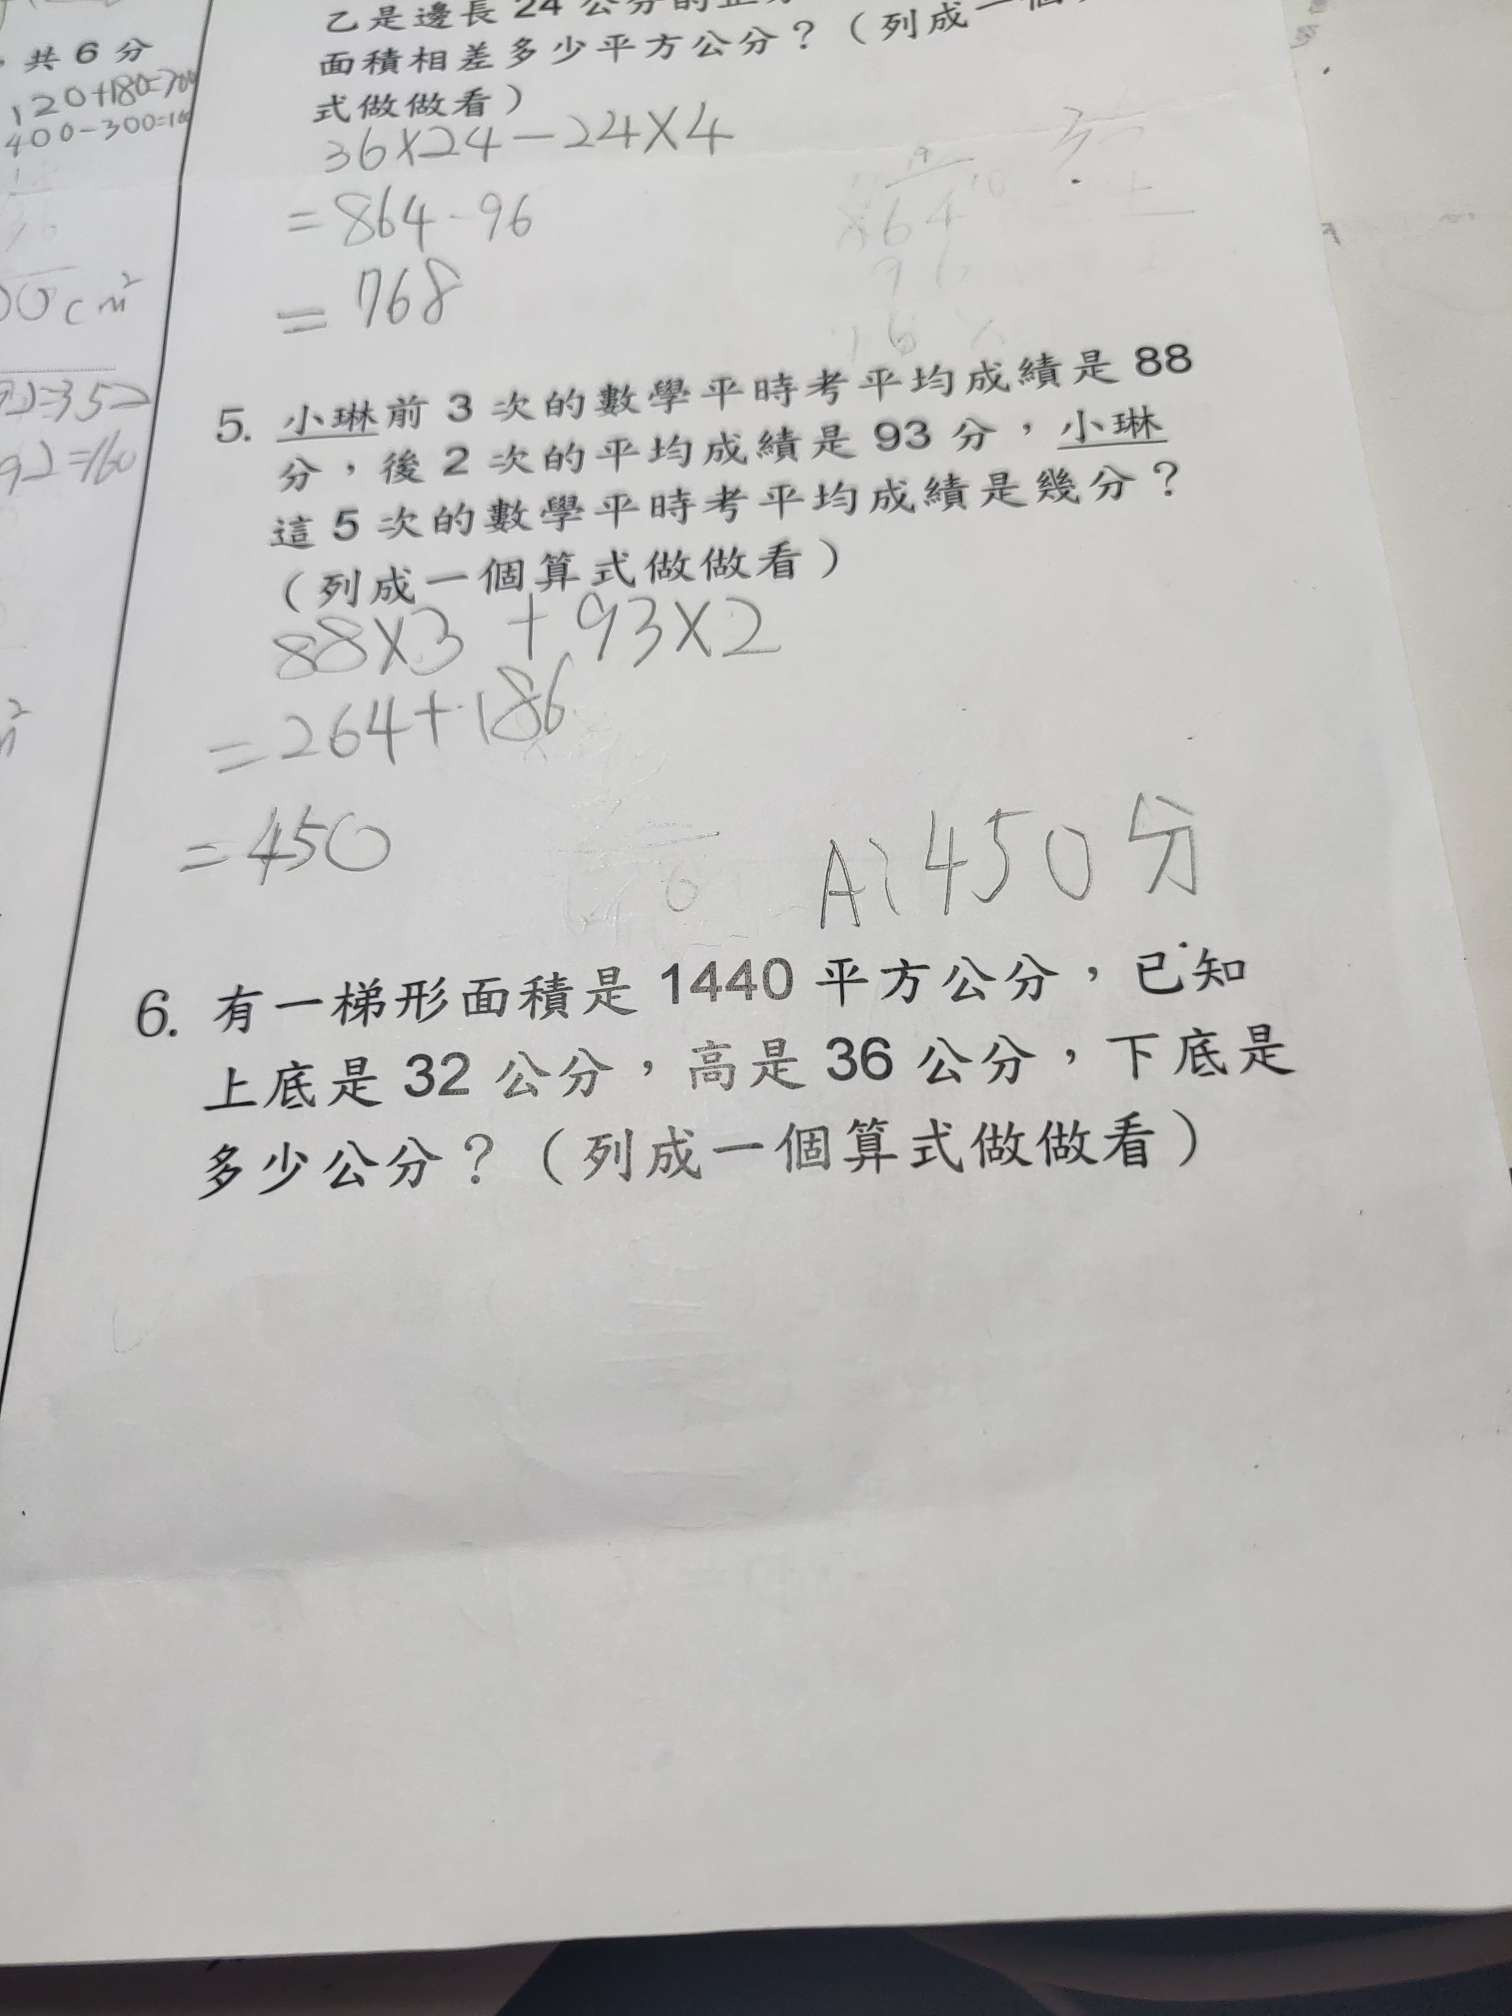 共 6 分
120+180=300
400-300=100
cm²
乙是邊長 24 公分的正
面積相差多少平方公分？（列成一個
式做做看）
36×24-24×4
=864-96
=768
5. 小琳前 3 次的數學平時考平均成績是 88
分，後 2 次的平均成績是 93 分，小琳
這 5 次的數學平時考平均成績是幾分？
（列成一個算式做做看）
88×3 +93×2
=264+186
=450
A:450分
6. 有一梯形面積是 1440 平方公分，已知
上底是 32 公分，高是 36 公分，下底是
多少公分？（列成一個算式做做看）